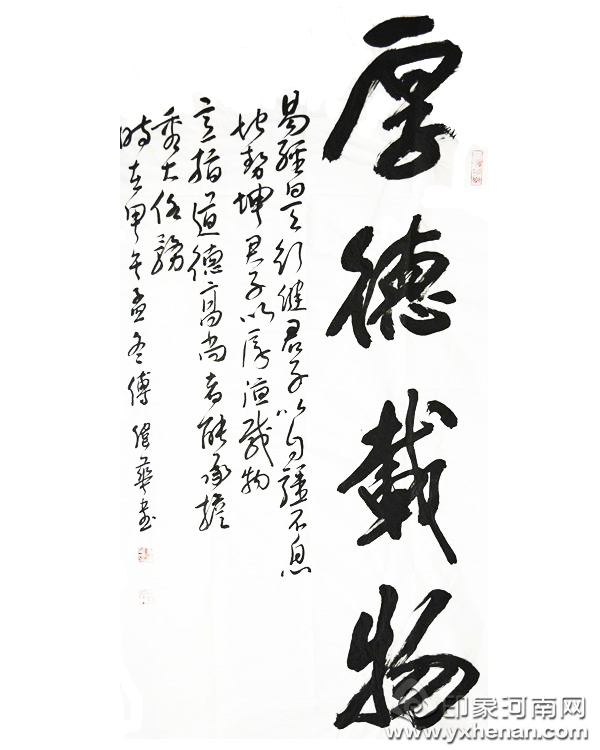 厚德載物
易經曰天行健君子以自彊不息
地勢坤君子以厚德載物
意指道德高尚者能承擔
重大任務
時在甲午孟冬傅偉華書
印象河南网
www.yxhenan.com